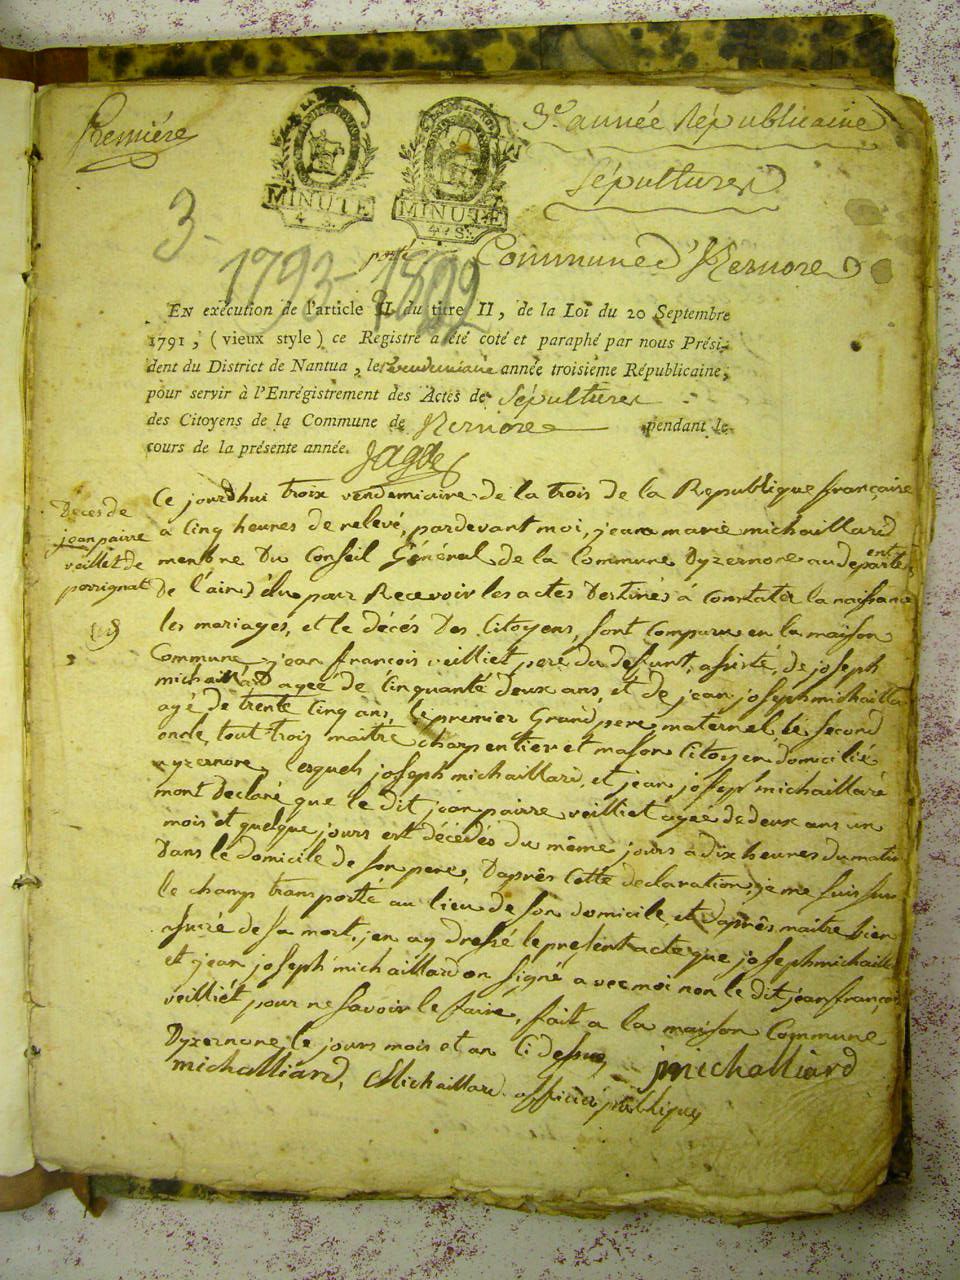 Première
3e année Républicaine
Sépultures
MINUTE
4. S.
MINUTE
4. S.
3-
1793-1802
pour Commune d'Izernore
EN exécution de l'article II du titre II, de la Loi du 20 Septembre
1791, (vieux style) ce Registre a été coté et paraphé par nous Prési-
dent du District de Nantua, le vendemiaire année troisième Républicaine,
pour servir à l'Enrégistrement des Actes de Sépultures
des Citoyens de la Commune de Izernore pendant le
cours de la présente année. Jagot
Décès de
jean pairre
veillet de
perrignat
Ce jourdhui troix vendemiaire de la trois de la Republique françaize
à Cinq heures de relevé, pardevant moi, jean marie michaillard
membre Du Conseil Général de la Commune Dyzernore au departement
De l'ain élu pour Recevoir les actes Destinés à Constater la naissance
les mariages, et le décés Des Citoyens, sont Comparu en la maison
Commune, jean françois veilliet pere du defunt, assisté, de joseph
michaillard agée de Cinquante deux ans, et de jean joseph michaillard
agé de trente Cinq ans, le premier Grand pere maternel le second
oncle, tout trois maitre charpentier et mason Citoyen domicilié
a yzernore, lesquels joseph michaillard, et jean joseph michaillard
mont Declaré que le dit jean pairre veilliet agée de deux ans un
mois et quelque jours est décédés du même jours a dix heures du matin
Dans le domicile de son pere, D'après Cette declaration, je me suis sur
le champ transporté au lieu de son domicile, et d'après maitre bien
assuré de sa mort, jen ay dressé le present acte que joseph michaillard
et jean joseph michaillard on signé avec moi non le dit jean françois
veilliét, pour ne savoir le faire, fait a la maison Commune
Dyzernore, le jours mois et an Ci dessus jmichalliard
michalliard, Michaillard officier publique